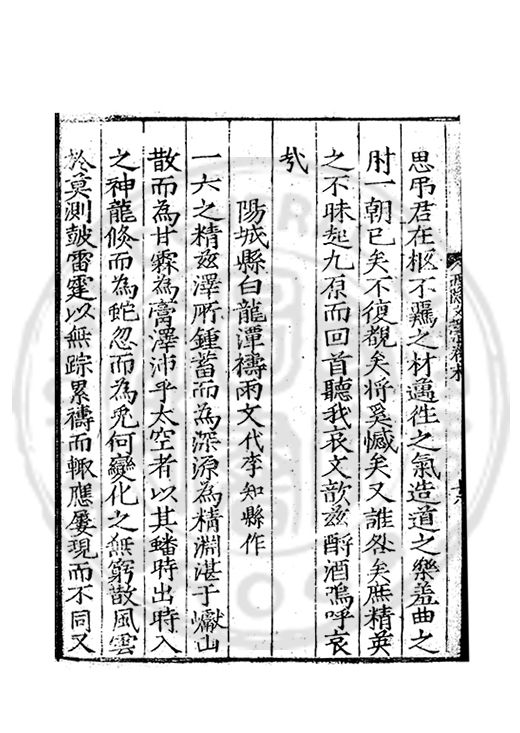 思吊君在柩不羈之材邁徃之氣造道之樂羞曲之
肘一朝已矣不復覩矣將奚憾矣又誰咎矣庶精英
之不昧起九原而回首聽我哀文歆兹酹酒嗚呼哀
㢤
陽城縣白龍潭禱雨文代李知縣作
一六之精兹澤所鍾蓄而為深源為精淵湛于巘山
散而為甘霖為膏澤沛乎太空者以其蟠時出時入
之神龍倐而為蛇忽而為兎何變化之無窮散風雲
於莫測皷雷霆以無踪累禱而輙應屢現而不同又